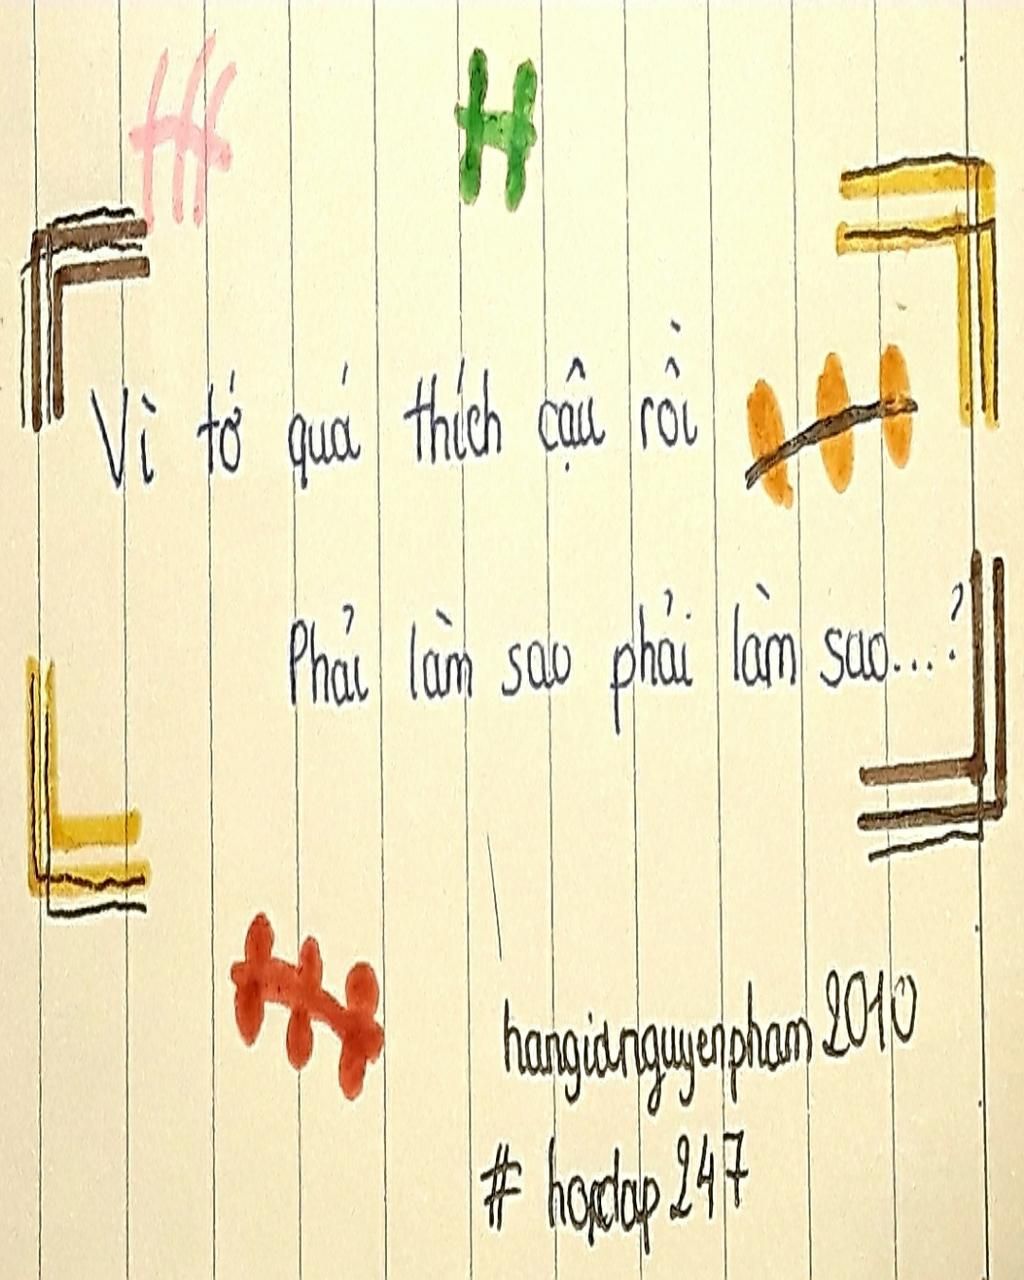 Vì tớ quá thích cậu rồi
Phải làm sao phải làm sao....?
hangianguyenpham 2010
# hoidap 247